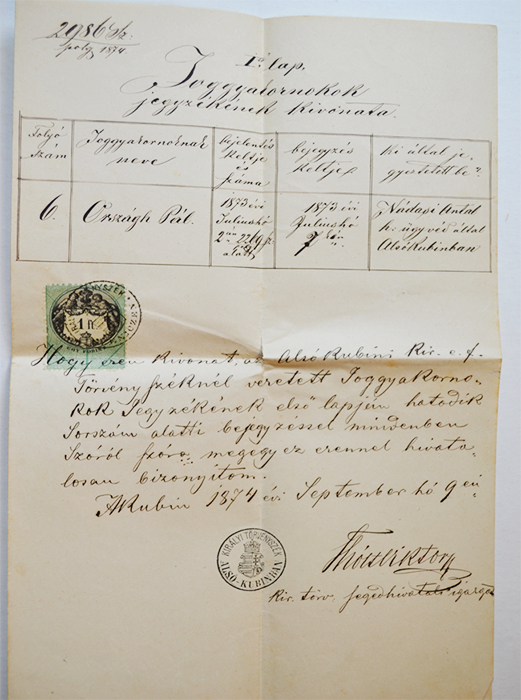 2986 Sz.
polg. 1874.
I. lap.
Joggyakornokok
jegyzékének kivonata.
Folyó
szám
Joggyakornoknak
neve
bejelentés
keltje
és
száma
bejegyzés
keltje
ki által je-
gyeztetett be?
6.
Országh Pál.
1873 évi
Juliushó
2án 2269 sz.
alatt
1873 évi
Juliushó
7én
Nádasi Antal
h. ügyvéd által
AlsóKubinban
1 ft
Hogy ezen kivonat, az AlsóKubini Kir. e. f.
Törvényszéknél vezetett Joggyakorno-
kok Jegyzékének első lapján hatodik
Sorszám alatti bejegyzéssel mindenben
Szóról szóra megegyez ezennel hivata-
losan bizonyitom.
AKubin 1874 évi September hó 9én
KIRÁLYI TÖRVÉNYSZÉK
ALSÓ-KUBINBAN
Kir. törv. segédhivatali igazgató